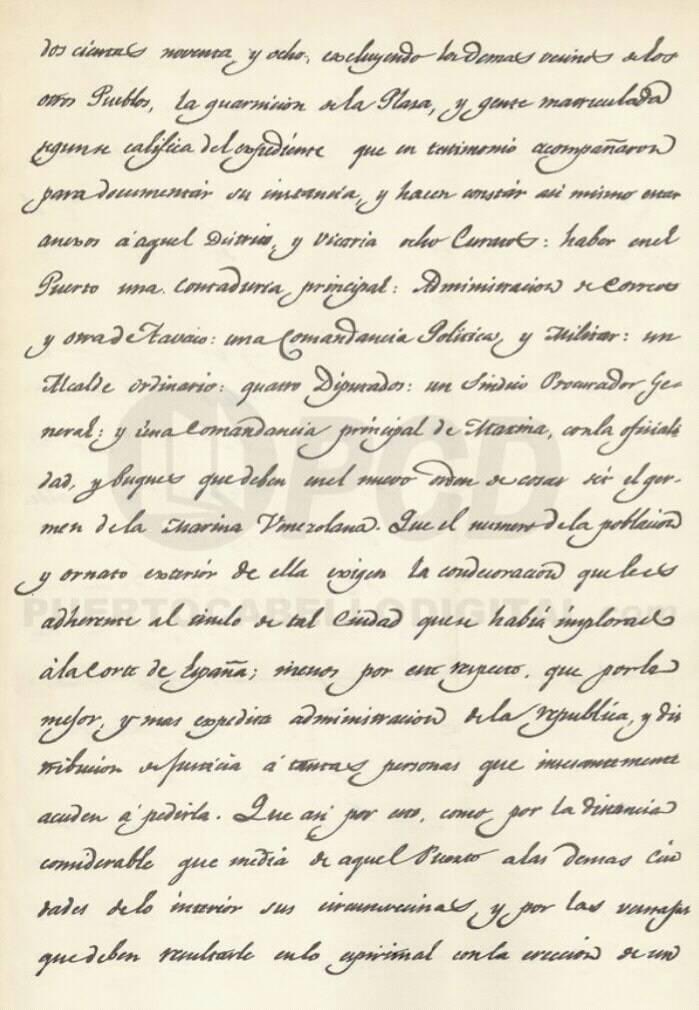 dos cientas noventa, y ocho, excluyendo los demas vecinos de los
otros Pueblos, la guarnicion de la Plasa, y gente matriculada
segun se califica del expediente que en testimonio acompañaron
para documentar su instancia, y hacen constár asi mismo estar
anexos á aquel Distrito, y Vicaria ocho Curatos: haber en el
Puerto una Contaduria principal: Administracion de Correos
y otra de Tavaco: una Comandancia Politica, y Militar: un
Alcalde ordinario: quatro Diputados: un Sindico Procurador Ge-
neral: y úna Comandancia principal de Marina, con la oficiali
dad, y buques que deben en el nuevo orden de cosas sér el ger-
men de la Marina Venezolana. Que el numero de la poblacion
y ornato exterior de ella exigen la condecoracion que les es
adherente al titulo de tal Ciudad que se habiá ímplorado
á la Corte de España; menos por este respecto, que por la
mejor, y mas expedita administracion de la republica, y dis
tribucion de justicia á tantas personas que incesantemente
acuden á pedirla. Que asi por esto, como por la distancia
considerable que media de aquel Puerto a las demas Ciu
dades de lo interior sus circunvecinas, y por las ventajas
que deben resultarle en lo espiritual con la ereccion de un
PCD
PUERTOCABELLODIGITAL.com